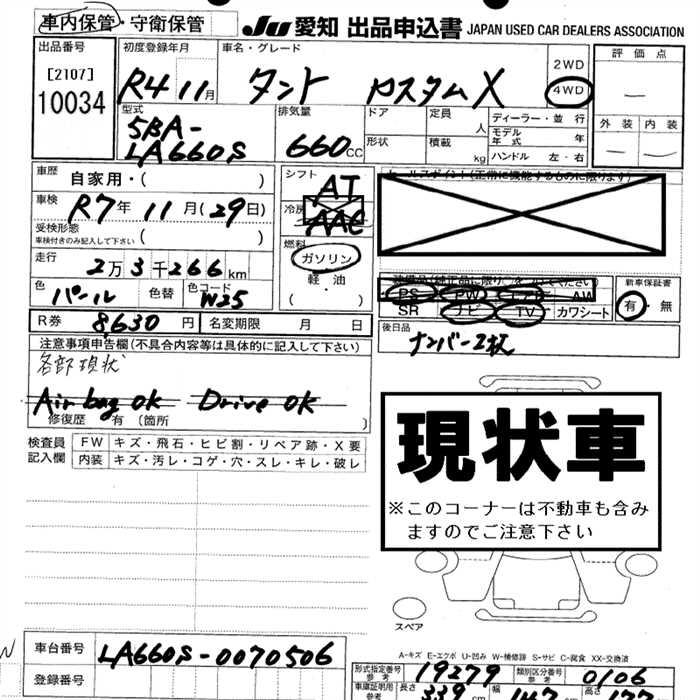 車内保管・守衛保管
JU 愛知 出品申込書 JAPAN USED CAR DEALERS ASSOCIATION
出品番号
[2107]
10034
初度登録年月
R4 11月
車名・グレード
タント カスタムX
2WD
4WD
評価点
—
外装 内装
— —
型式
5BA-
LA660S
排気量
660cc
ドア
定員
人
形状
積載
kg
ディーラー・並行
モデル年式 年
ハンドル 左・右
車歴
自家用・( )
車検
R7年 11月(29日)
受検形態
車検付きのみ記入して下さい ( )
走行
2万3千266km
色
パール
色替
色コード
W25
R券 8,630円
名変期限 月 日
シフト
AT
冷房
AAC
燃料
ガソリン
軽・油
( )
セールスポイント(正常に機能するものに限ります)
PS PW エアB AW
SR ナビ TV カワシート
新車保証書
有・無
後日品
ナンバー2枚
注意事項申告欄(不具合内容等は具体的に記入して下さい)
各部現状
Air bag OK Drive OK
修復歴 有 (箇所 )
検査員記入欄
FW キズ・飛石・ヒビ割・リペア跡・X要
内装 キズ・汚レ・コゲ・穴・スレ・キレ・破レ
現状車
※このコーナーは不動車も含み
ますのでご注意下さい
スペア
A-キズ E-エクボ U-凹み W-補修跡 S-サビ C-腐食 XX-交換済
車台番号 LA660S-0070506
登録番号
形式指定番号 参考 19279
類別区分番号 参考 0106
車庫証明用 参考 長さ 339cm 幅 147